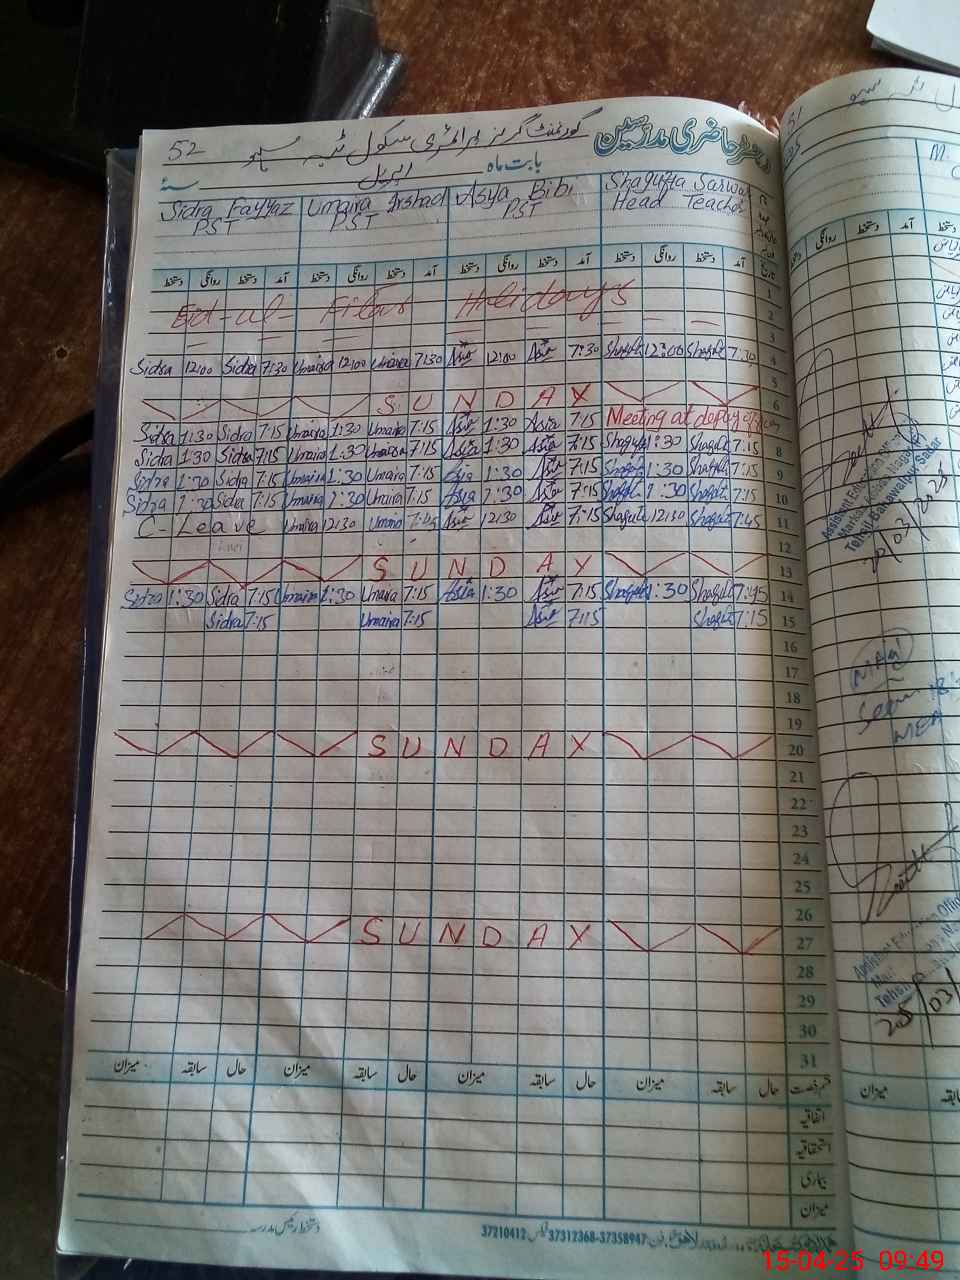 رجسٹر حاضری مدرسین
52 گورنمنٹ گرلز پرائمری سکول
بابت ماہ اپریل سنہ
Sidra Fayyaz Umaira Irshad Asya Bibi Shagufta Sarwar
PST PST PST Head Teacher
دستخط روانگی دستخط آمد دستخط روانگی دستخط آمد دستخط روانگی دستخط آمد دستخط روانگی دستخط آمد تاریخ
1
Eid-ul-Fitar Holidays 2
3
Sidra 12:00 Sidra 7:30 Umaira 12:00 Umaira 7:30 Asia 12:00 Asia 7:30 Shagufta 12:00 Shagufta 7:30 4
5
SUNDAY 6
Sidra 1:30 Sidra 7:15 Umaira 1:30 Umaira 7:15 Asia 1:30 Asia 7:15 Meeting at
Sidra 1:30 Sidra 7:15 Umaira 1:30 Umaira 7:15 Asia 1:30 Asia 7:15 Shagufta 1:30 Shagufta 7:15 8
Sidra 1:30 Sidra 7:15 Umaira 1:30 Umaira 7:15 Asia 1:30 Asia 7:15 Shagufta 1:30 Shagufta 7:15 9
Sidra 1:30 Sidra 7:15 Umaira 1:30 Umaira 7:15 Asia 1:30 Asia 7:15 Shagufta 1:30 Shagufta 7:15 10
C-Leave Umaira 12:30 Umaira 7:45 Asia 12:30 Asia 7:15 Shagufta 12:30 Shagufta 7:45 11
12
SUNDAY 13
Sidra 1:30 Sidra 7:15 Umaira 1:30 Umaira 7:15 Asia 1:30 Asia 7:15 Shagufta 1:30 Shagufta 7:45 14
Sidra 7:15 Umaira 7:15 Asia 7:15 Shagufta 7:15 15
16
17
18
19
SUNDAY 20
21
22
23
24
25
26
SUNDAY 27
28
29
30
31
میزان سابقہ حال میزان سابقہ حال میزان سابقہ حال میزان سابقہ حال قسم رخصت
اتفاقیہ
استحقاقیہ
بیماری
میزان
دستخط رئیس مدرسہ
فون: 37312368-37358947 فیکس 37210412
51
Assistant Education Officer
Tehsil Bahawalpur Sadar
03/2025
Seen
MEA
Assistant Education Officer
Tehsil
میزان
15-04-25 09:49